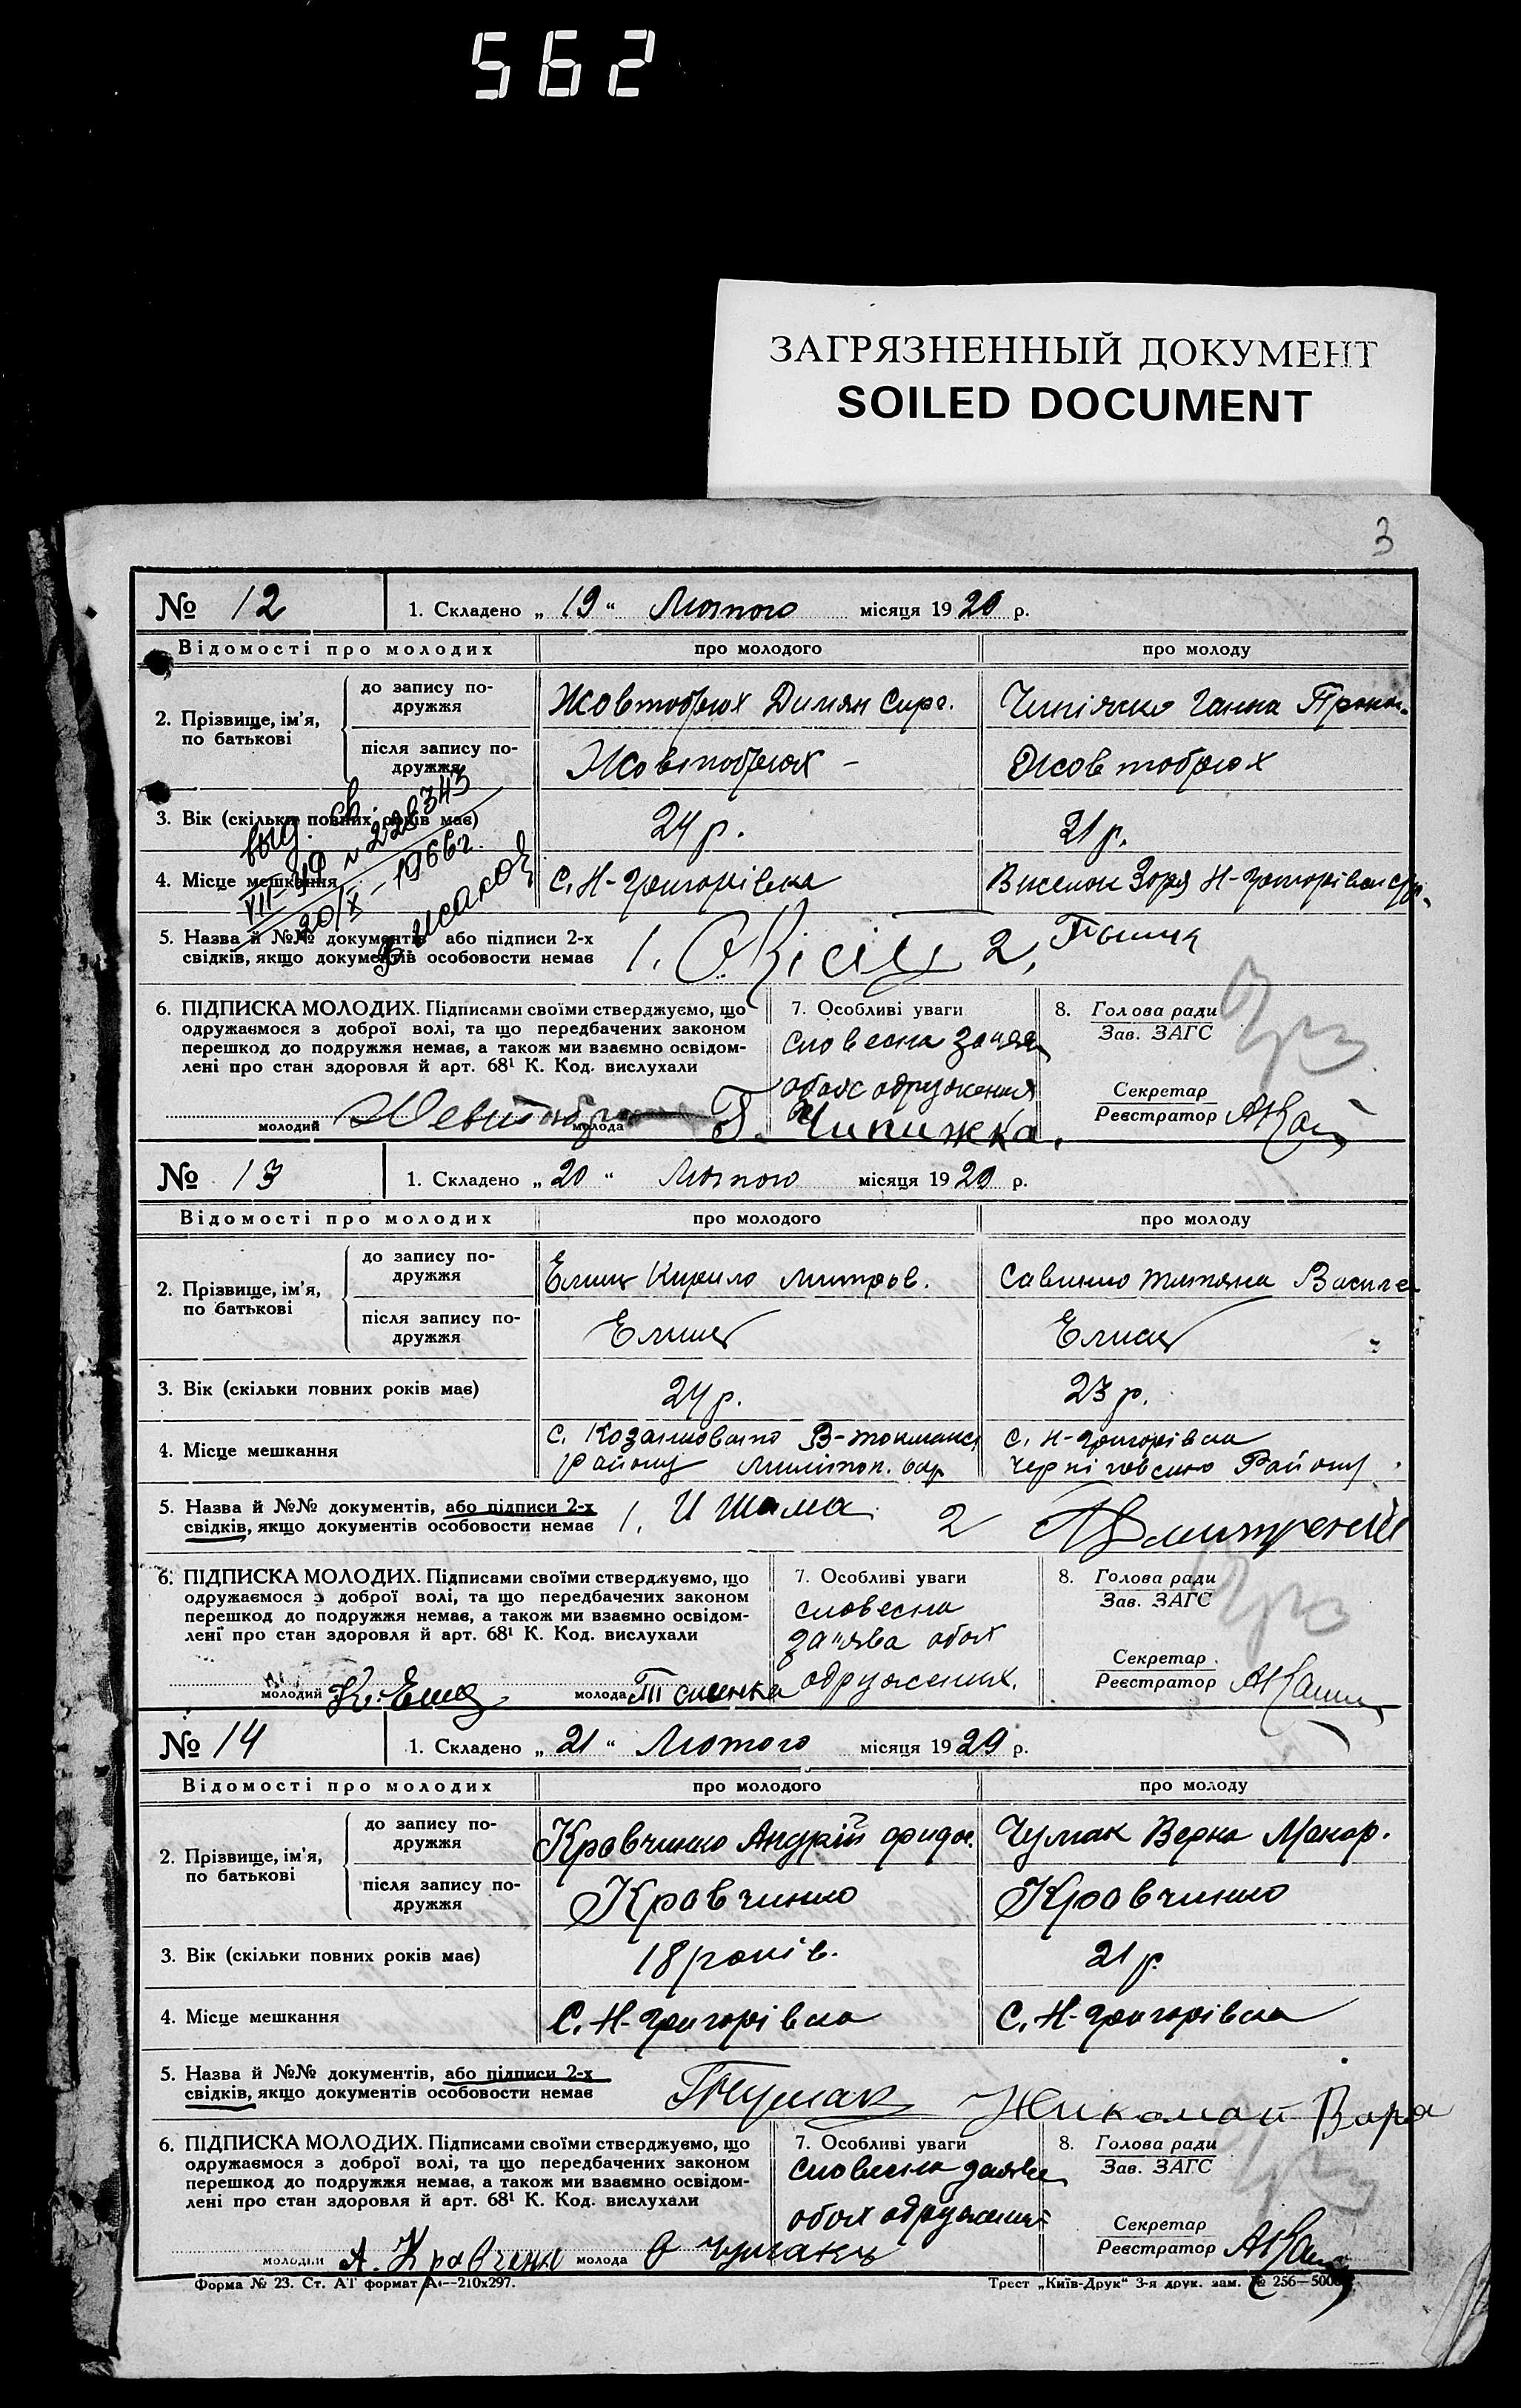 562
ЗАГРЯЗНЕННЫЙ ДОКУМЕНТ
SOILED DOCUMENT
3
№ 12 1. Складено „ 19 “ Лютого місяця 19 29 р.
Відомості про молодих про молодого про молоду
2. Прізвище, ім'я, по батькові
до запису по-дружжя Жовтобрюх Димян Сирг. Ганна
після запису по-дружжя Жовтобрюх - Жовтобрюх
3. Вік (скільки повних років має) 24 р. 21 р.
выд. св.
VII-ЯР № 228343
20/X - 1966 г.
4. Місце мешкання С. Н-Григорівка Виселок Зоря Н-Григорівськ
5. Назва й №№ документів або підписи 2-х
свідків, якщо документів особовости немає 1. 2.
6. ПІДПИСКА МОЛОДИХ. Підписами своїми стверджуємо, що
одружаємося з доброї волі, та що передбачених законом
перешкод до подружжя немає, а також ми взаємно освідом-
лені про стан здоровля й арт. 68¹ К. Код. вислухали
молодий молода Г. Чипижка.
7. Особливі уваги
словесна заява
обоїх одруження
8. Голова ради
Зав. ЗАГС
Секретар
Реєстратор
№ 13 1. Складено „ 20 “ Лютого місяця 19 29 р.
Відомості про молодих про молодого про молоду
2. Прізвище, ім'я, по батькові
до запису по-дружжя Елищ Кирило Митров. Савинко Титяна Василе
після запису по-дружжя Елищ Елищ
3. Вік (скільки повних років має) 24 р. 23 р.
4. Місце мешкання С. В-токмакс С. Н-Григорівка
району Милітоп. окр Черніговсько Району
5. Назва й №№ документів, або підписи 2-х
свідків, якщо документів особовости немає 1. И Шама 2
6. ПІДПИСКА МОЛОДИХ. Підписами своїми стверджуємо, що
одружаємося з доброї волі, та що передбачених законом
перешкод до подружжя немає, а також ми взаємно освідом-
лені про стан здоровля й арт. 68¹ К. Код. вислухали
молодий молода
7. Особливі уваги
словесна
заява обох
одружених.
8. Голова ради
Зав. ЗАГС
Секретар
Реєстратор
№ 14 1. Складено „ 21 “ Лютого місяця 19 29 р.
Відомості про молодих про молодого про молоду
2. Прізвище, ім'я, по батькові
до запису по-дружжя Кравчинко Андрій Чумак Верка Макар.
після запису по-дружжя Кравчинко Кравчинко
3. Вік (скільки повних років має) 18 років. 21 р.
4. Місце мешкання С. Н-Григорівка С. Н-Григорівка
5. Назва й №№ документів, або підписи 2-х
свідків, якщо документів особовости немає Николай Вара
6. ПІДПИСКА МОЛОДИХ. Підписами своїми стверджуємо, що
одружаємося з доброї волі, та що передбачених законом
перешкод до подружжя немає, а також ми взаємно освідом-
лені про стан здоровля й арт. 68¹ К. Код. вислухали
молодий А. Кравченк молода
7. Особливі уваги
словесна заява
обох одружених
8. Голова ради
Зав. ЗАГС
Секретар
Реєстратор
Форма № 23. Ст. АТ формат А₄—210х297. Трест „Київ-Друк“ 3-я друк. зам. № 256—5000